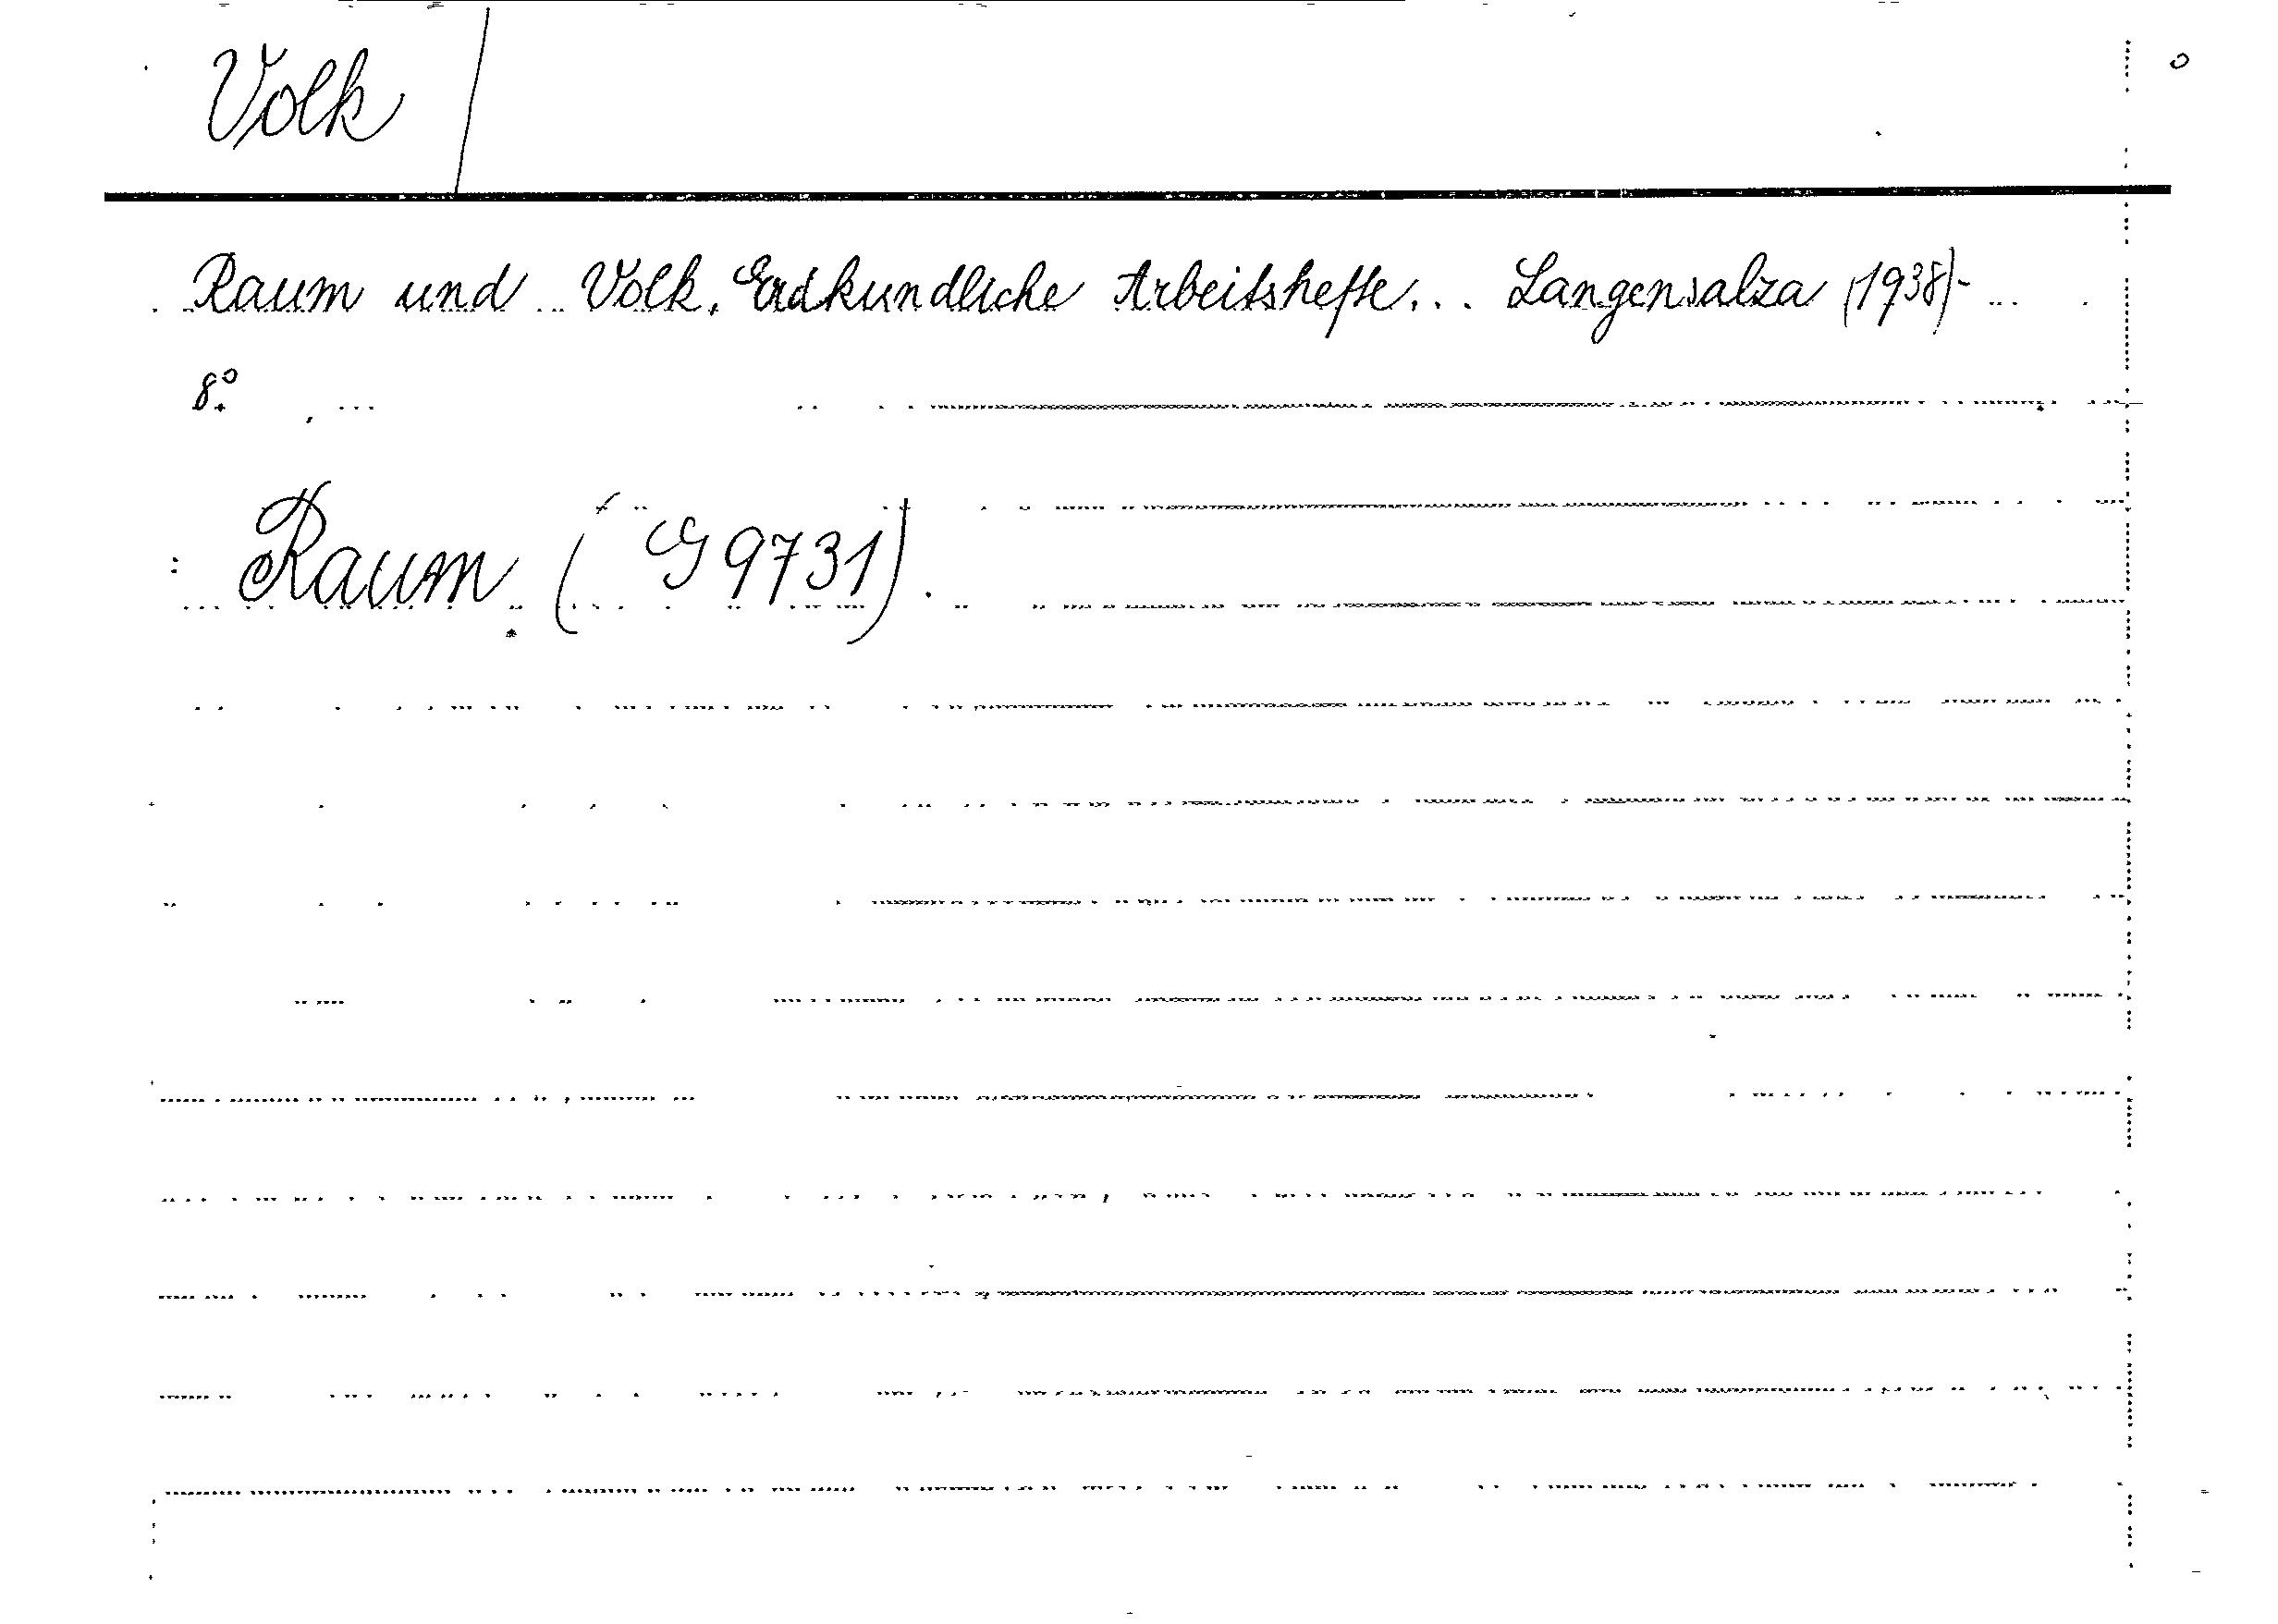 Volk
Raum und Volk. Erdkundliche Arbeitshefte... Langensalza (1938)-
8°.
Raum (G 9731).